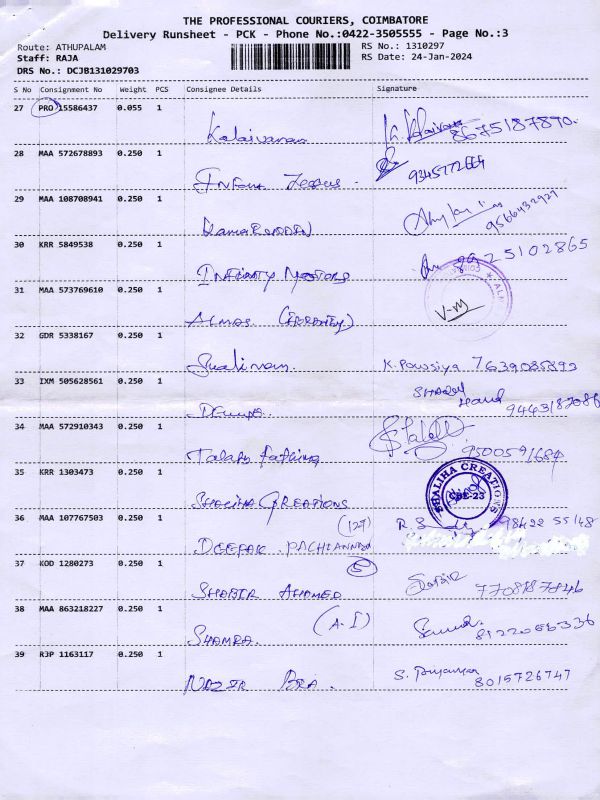 THE PROFESSIONAL COURIERS, COIMBATORE
Delivery Runsheet - PCK - Phone No.:0422-3505555 - Page No.:3
Route: ATHUPALAM RS No.: 1310297
Staff: RAJA RS Date: 24-Jan-2024
DRS No.: DCJB131029703
S No Consignment No Weight PCS Consignee Details Signature
27 PRO 15586437 0.055 1
Kalaivanan 8675187890
28 MAA 572678893 0.250 1
29 MAA 108708941 0.250 1
9566432921
30 KRR 5849538 0.250 1
8925102865
INFINITY MOTORS
31 MAA 573769610 0.250 1
V-M
ALMAS
32 GDR 5338167 0.250 1
K. Powsiya 7639085893
33 IXM 505628561 0.250 1
9443187086
34 MAA 572910343 0.250 1
9500591684
Fathima
35 KRR 1303473 0.250 1
SHALIHA CREATIONS
CBE-23
SHALIHA CREATIONS
36 MAA 107767503 0.250 1
(127) R.S 98422 55148
DEEPAK PACHIANNAN
37 KOD 1280273 0.250 1
5
SHABIR AHAMED
38 MAA 863218227 0.250 1
(A.I)
SHAMRA 8122086336
39 RJP 1163117 0.250 1
S. Priyanka
NAZIR 8015726747